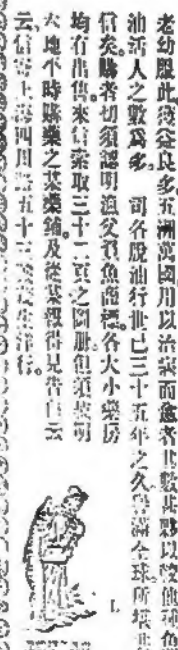 老幼服此獲益良多五洲萬國用以治病而愈者其數甚夥以較他種魚
油活人之數爲多 司各脫油行世已三十五年之久譽滿全球所
信矣購者切須認明漁父負魚商標各大小藥房
均有出售來信索取三十二頁之圖册但須書明
大地不時購藥之某藥鋪及從某報得見告白云
云信寄上海四川路五十三號 洋行